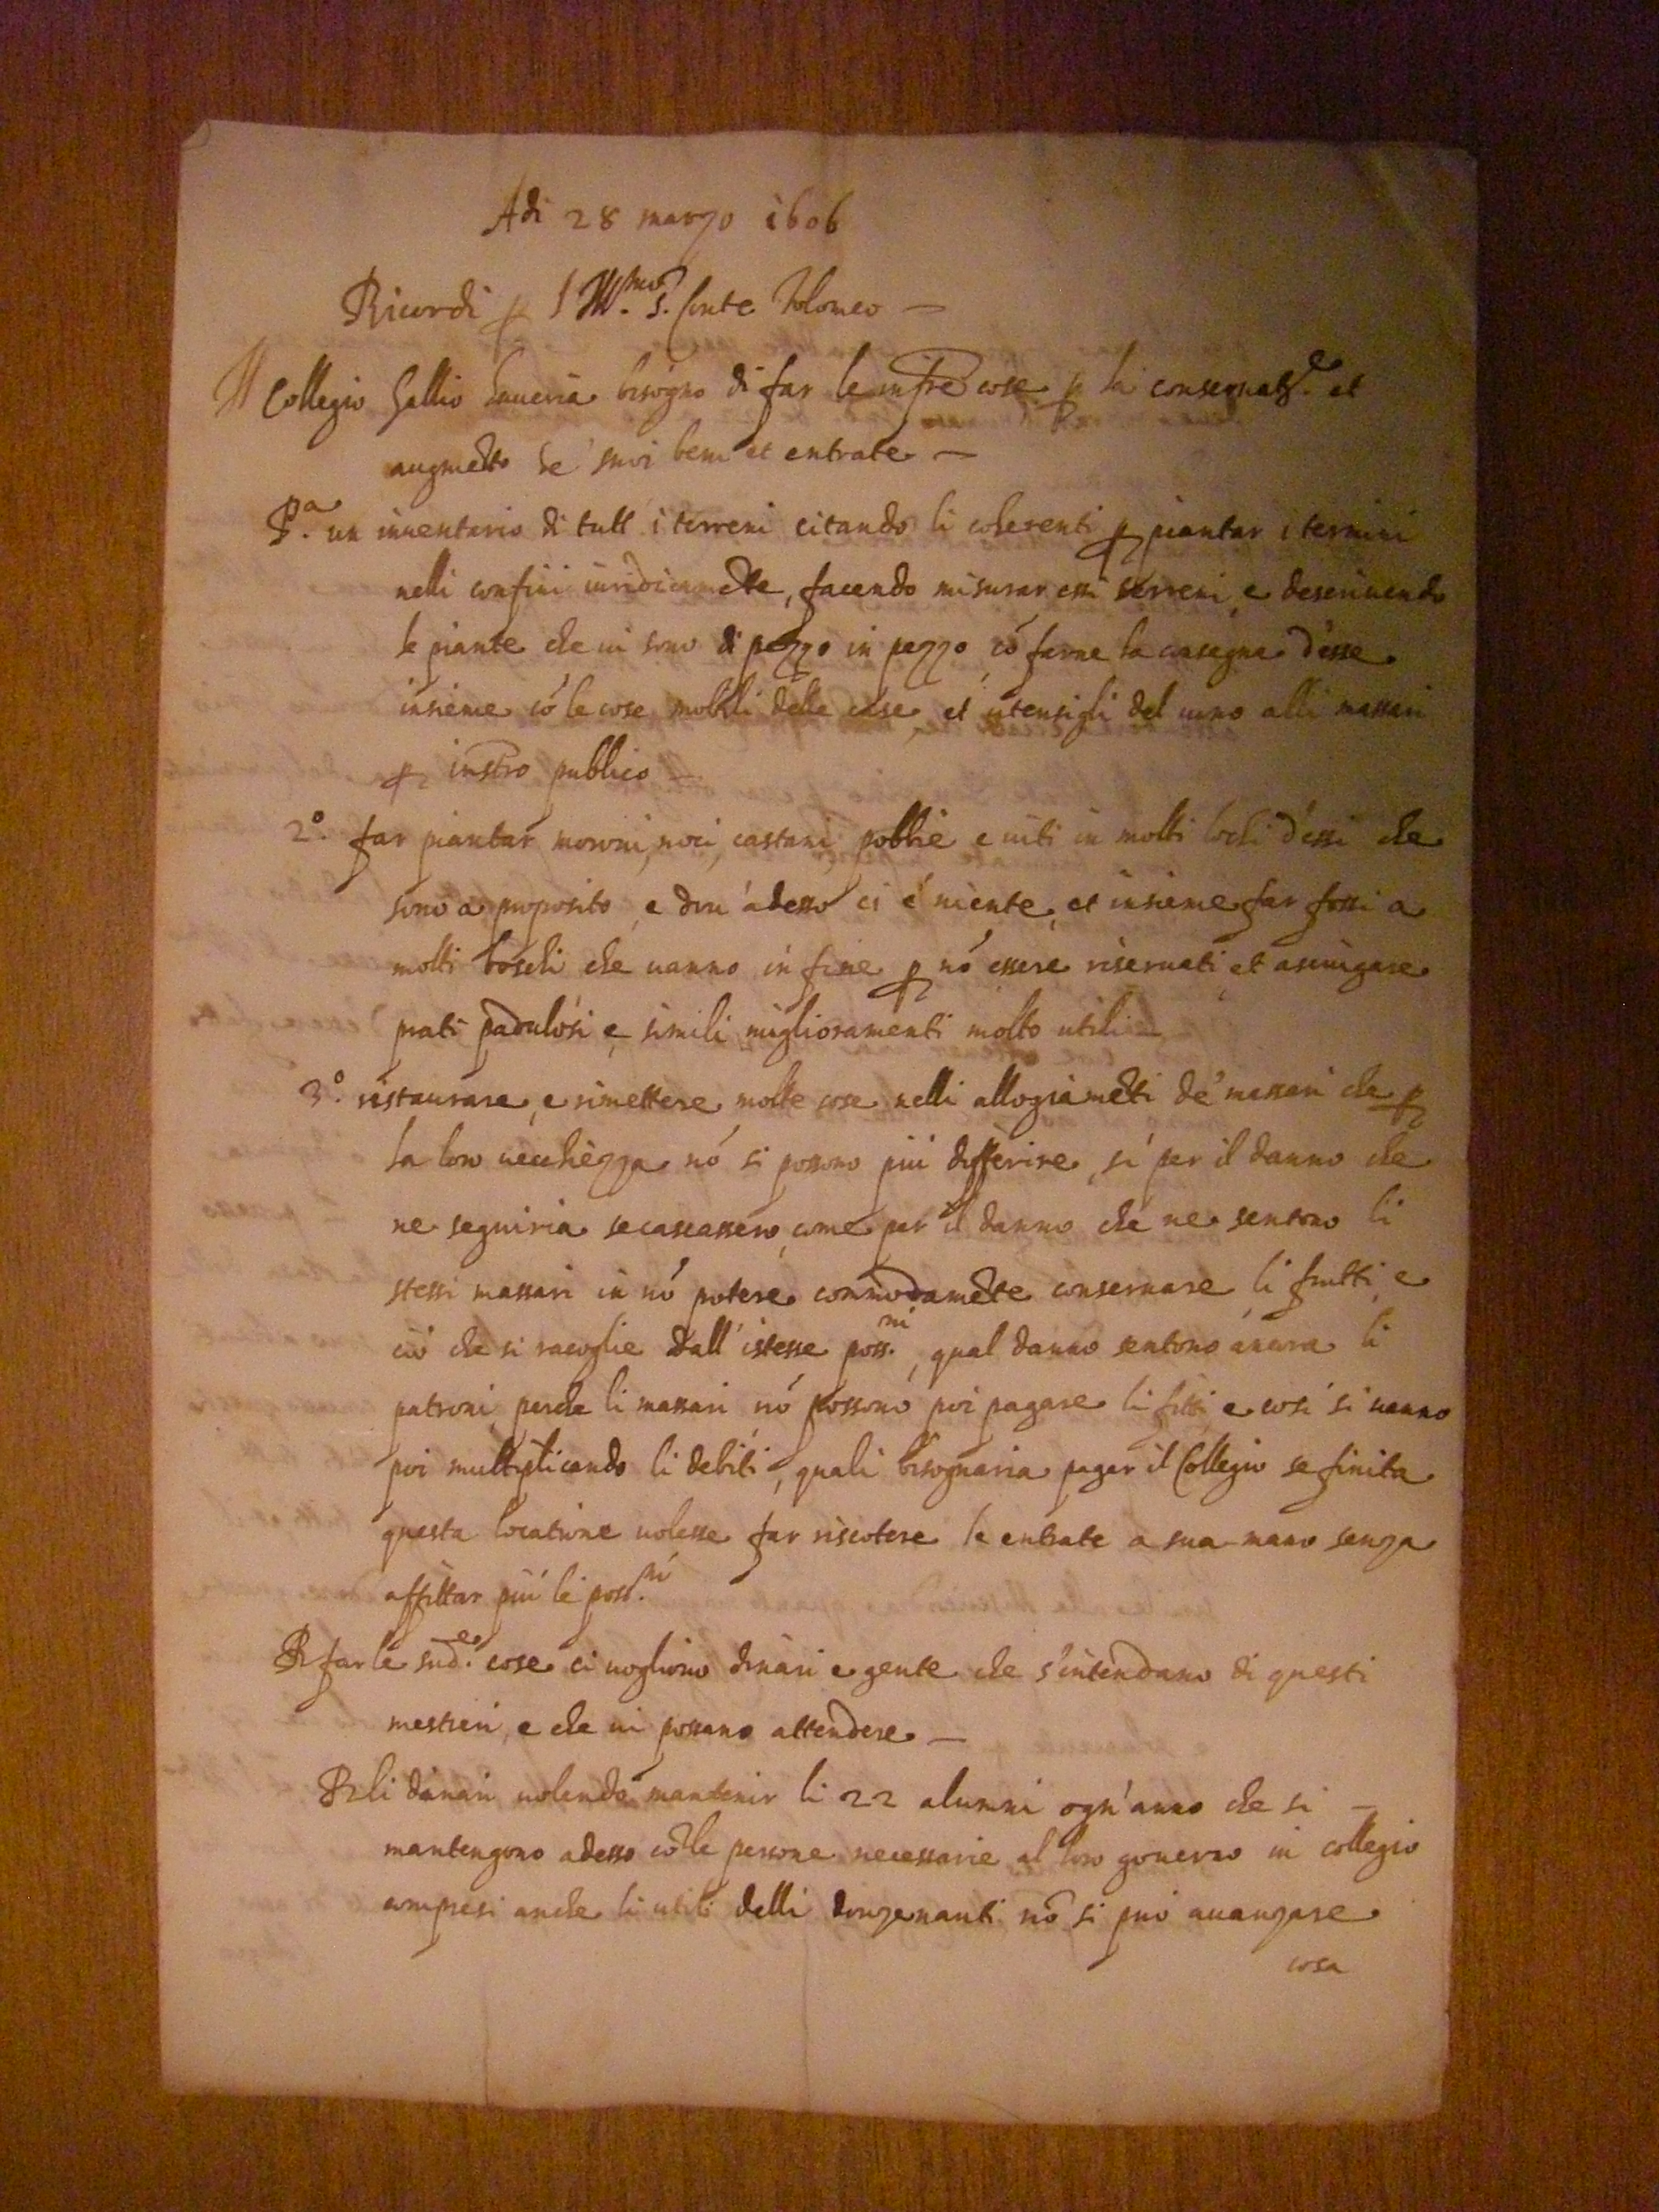 Adi 28 marzo 1606
Ricordi p l'Ill.mo S. Conte Tolomeo —
Il Collegio Gallio haueria bisogno di far le infre cose p la conseruatne. et
augmeto de' suoi beni et entrate —
P.a un inuentario di tutt i terreni citando li coherenti p piantar i termini
nelli confini iuridicamete, facendo misurar essi terreni, e descriuendo
le piante che ui sono di pezzo in pezzo, có farne la consegna d'esse
insieme có le cose mobili delle case, et utensigli del uino alli massari
p instro publico —
2.o far piantar moroni, noci, castani, pobbie e uiti in molti lochi d'essi che
sono a proposito, e dou' adesso ci é niente, et insieme far fossi a
molti boschi che uanno in fine p nó essere riseruati, et asciugare
prati padulosi e simili miglioramenti molto utili —
3.o ristaurare, e rimettere molte cose nelli allogiameti de' massari che p
la loro uecchiezza nó si possono piú differire, sí per il danno che
ne seguiria se cascassero, come per il danno che ne sentono li
stessi massari in nó potere commodamete conseruare li frutti, e
ció che si racoglie dall' istesse poss.ni, qual danno sentono ancora li
patroni, perche li massari nó possono poi pagare li fitti e cosí si uanno
poi multiplicando li debiti, quali bisognaria pagar il Collegio se finita
questa locatione uolesse far riscotere le entrate a sua mano senza
affittar piú le poss.ni
P far le sud.e cose ci uogliono denari e gente che s'intendano di questi
mestieri, e che ui possano attendere —
P li danari uolendo mantenir li 22 alunni ogn' anno che si —
mantengono adesso có le persone necessarie al loro gouerno in collegio
compresi anche li utili delli donzenanti nó si puó auanzare
cosa